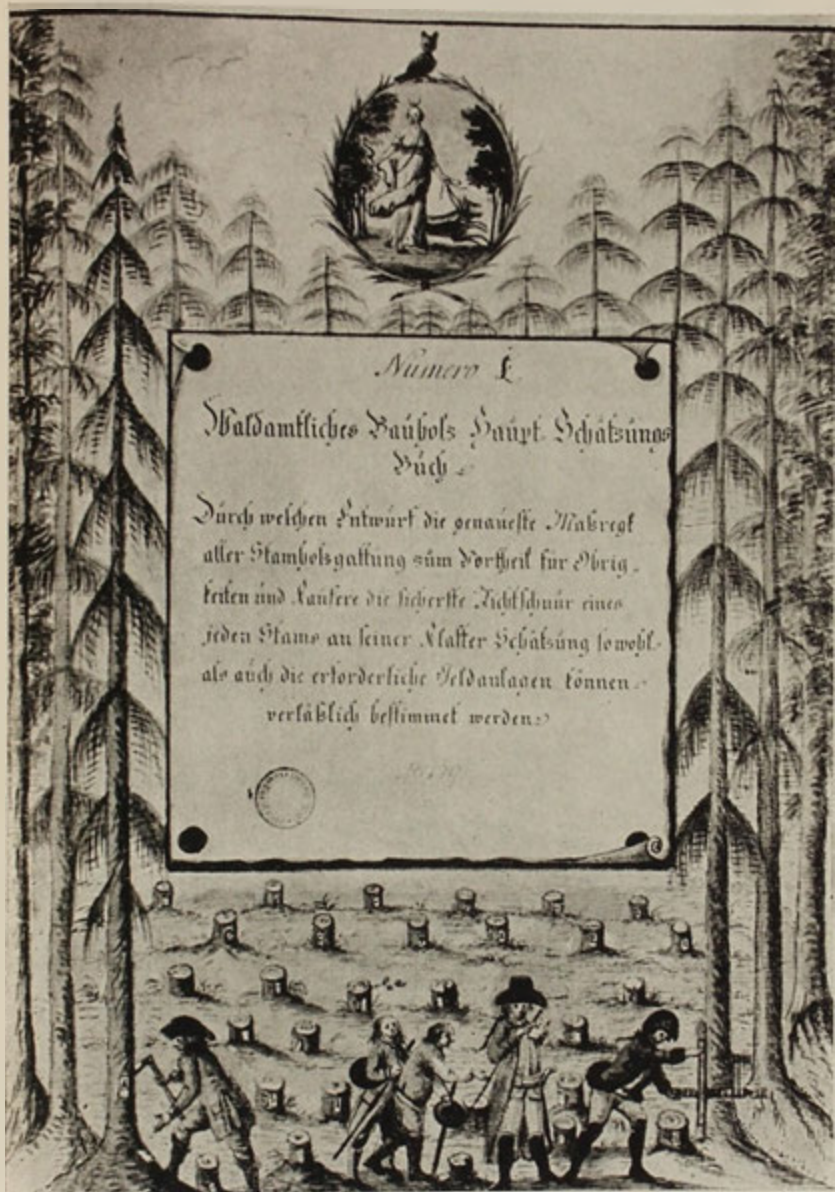 Numero 1.
Waldamtliches Bauholz Haupt Schätzungs
Buch
Durch welchen Entwurf die genaueste Maßregl
aller Stamholzgattung zum Vortheil für Obrig-
keiten und Kaufere die sicherste Richtschnur eines
jeden Stams an seiner Klafter Schätzung sowohl
als auch die erforderliche Geldanlagen können
verläßlich bestimmet werden